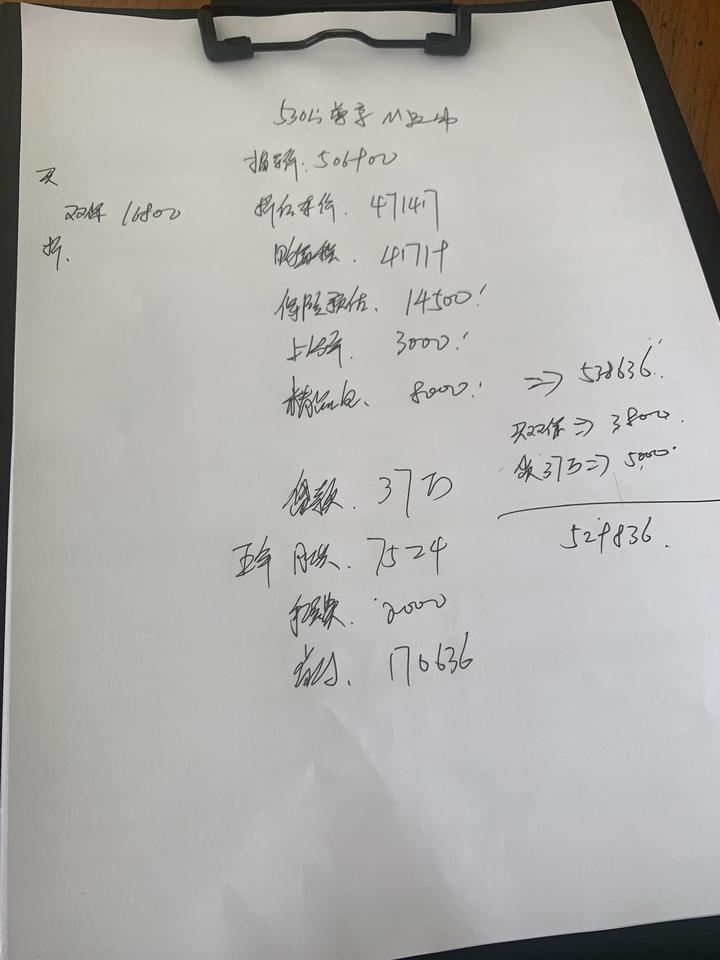 530Li 尊享 M运动
指导价: 506900
买
双保 16800
车价. 471417
折.
购置税. 41719
保险预估. 14500.
上牌费. 3000.
精品包. 8000.
=> 538636.
买双保 => 3800.
37万 => 5000.
529836.
贷款. 37万
五年 月供. 7524
手续费. 2000
首付. 170636